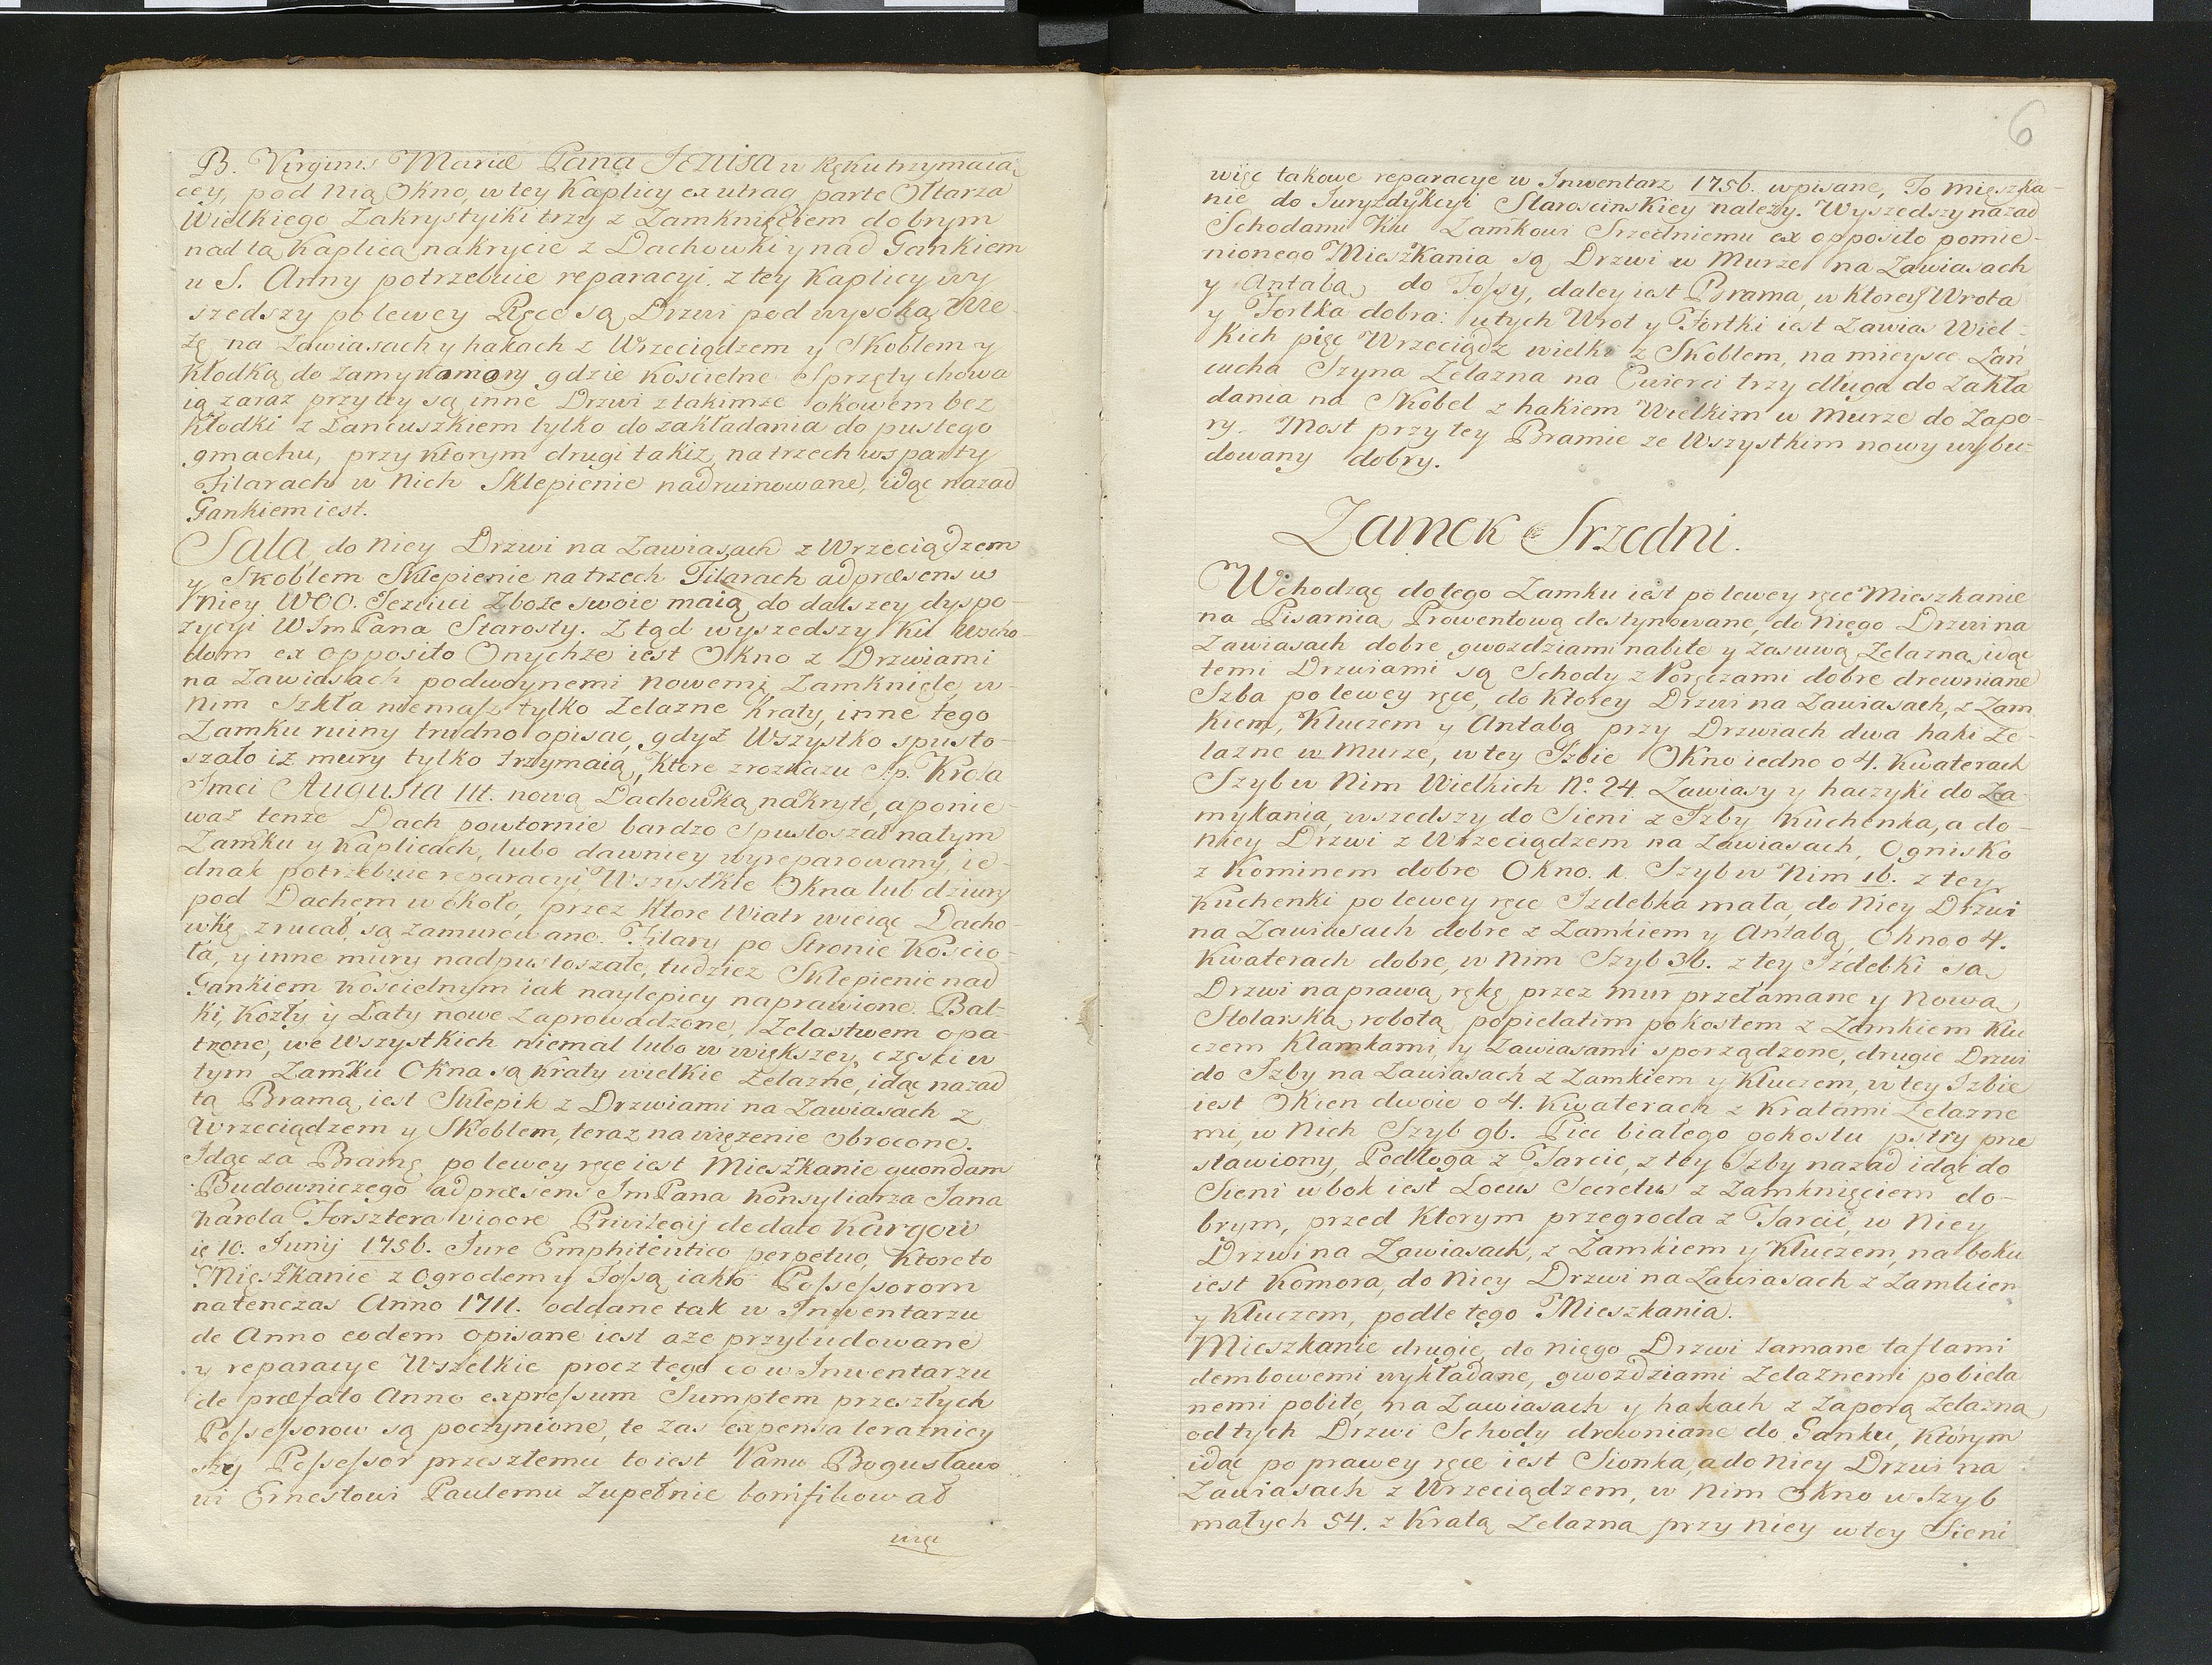 B. Virginis Mariæ Pana Jezusa w Ręku trzymaią
cey, pod nią Okno, w tey Kaplicy ex utraq parte Ołtarza
Wielkiego Zakrystyiki trzy z Zamknięciem dobrym
nad tą Kaplicą nakrycie z Dachowki y nad Gankiem
u S. Anny potrzebuie reparacyi. z tey Kaplicy wy
szedszy po lewey Ręce są Drzwi pod wysoką Wie
żę na Zawiasach y hakach z Wrzeciądzem y Skoblem y
Kłodką do zamykamony gdzie Koscielne Sprzęty chowa
ią zaraz przy tey są inne Drzwi z takimże okowem bez
Kłodki z Łancuszkiem tylko do zakładania do pustego
gmachu, przy ktorym drugi takiż, na trzech wsparty
Filarach w Nich Sklepienie nadruinowane, idąc nazad
Gankiem iest.
Sala do niey Drzwi na Zawiasach z Wrzeciądzem
y Skoblem Sklepienie na trzech Filarach ad præsens w
Niey WOO. Jezuici Zboże swoie maią do dalszey dyspo-
zycyi WImPana Starosty. Ztąd wyszedszy Ku Wscho-
dom ex opposito Onychże iest Okno z Drzwiami
na Zawiasach podwoynemi Nowemi Zamknięte w
Nim Szkła niemasz tylko Zelazne Kraty, inne tego
Zamku ruiny trudno opisac, gdyż Wszystko spusto-
szało iż mury tylko trzymaią, ktore z rozkazu Sp. Krola
Jmci Augusta III. nową Dachowką nakryte, a ponie-
waż tenże Dach powtornie bardzo Spustoszał na tym
Zamku y Kaplicach, lubo dawniey wyreparowany, ie-
dnak potrzebuie reparacyi, Wszystkie Okna lub dziury
pod Dachem w około, przez ktore Wiatr wieiąc Dacho-
wkę zrucał, są zamurowane. Filary po Stronie Koscio-
ła, y inne mury nadpustoszałe, tudziez Sklepienie nad
Gankiem Koscielnym iak naylepiey naprawione. Bal-
ki, Kozły y Łaty nowe zaprowadzone, Zelastwem opa-
trzone, we Wszystkich niemal lubo w większey częsci w
tym Zamku Okna są Kraty wielkie Zelazne, idąc nazad
tą Bramą iest Sklepik z Drzwiami na Zawiasach z
Wrzeciądzem y Skoblem, teraz na więzenie obrocone.
Idąc za Bramę po lewey ręce iest Mieszkanie quondam
Budowniczego ad præsens ImPana Konsyliarza Jana
Karola Forsztera vigore Privilegij de dato Kargow
ie 10. Junij 1756. Jure Emphiteutico perpetuo, Ktore to
Mieszkanie z Ogrodem y Fossą iako Possessorom
natenczas Anno 1711. oddane tak w Inwentarzu
de Anno eodem opisane iest aże przybudowane
y reparacye Wszelkie procz tego co w Inwentarzu
de præfato Anno expressum Sumptem przeszłych
Possessorow są poczynione, te zas expensa terazniey
szy Possessor przeszłemu to iest Panu Bogusławo
wi Ernestowi Paulemu Zupełnie bonifikował
6
więc takowe reparacye w Inwentarz 1756. wpisane, To mieszka-
nie do Juryzdykcyi Staroscinskiey należy. Wyszedszy nazad
Schodami Ku Zamkowi Srzedniemu ex opposito pomie-
nionego Mieszkania są Drzwi w Murze na Zawiasach
y Antabą do Fossy, daley iest Brama, w ktorey Wrota
y Fortka dobra: u tych Wrot y Fortki iest Zawias Wiel-
kich pięc Wrzeciądz wielki z Skoblem, na mieysce Łań
cucha Szyna Zelazna na Cwierci trzy długa do Zakła
dania na Skobel z hakiem Wielkim w murze do Zapo-
ry. Most przy tey Bramie ze Wszystkim nowy wybu-
dowany dobry.
Zamek Srzedni.
Wchodząc do tego Zamku iest po lewey ręce Mieszkanie
na Pisarnia Prowentową destynowane, do Niego Drzwi na
Zawiasach dobre gwozdziami nabite y Zasuwą Zelazną, idąc
temi Drzwiami są Schody z Poręczami dobre drewniane
Izba po lewey ręce, do ktorey Drzwi na Zawiasach, z Zam
kiem, Kluczem y Antabą przy Drzwiach dwa haki Ze-
lazne w Murze, w tey Izbie Okno iedno o 4. Kwaterach
Szyb w Nim Wielkich No. 24 Zawiasy y haczyki do Za-
mykania, wszedszy do Sieni z Izby Kuchenka, a do-
niey Drzwi z Wrzeciądzem na Zawiasach, Ognisko
z Kominem dobre Okno. 1. Szyb w Nim 16. z tey
Kuchenki po lewey ręce Izdebka mała, do Niey Drzwi
na Zawiasach dobre z Zamkiem y Antabą, Okno o 4.
Kwaterach dobre, w Nim Szyb 36. z tey Izdebki są
Drzwi na prawą rękę przez mur przełamane y Nową
Stolarską robotą popielatim pokostem z Zamkiem Klu
czem Klamkami, y Zawiasami sporządzone, drugie Drzwi
do Izby na Zawiasach z Zamkiem y Kluczem, w tey Izbie
iest Okien dwoie o 4. Kwaterach z Kratami Zelazne
mi, w Nich Szyb 96. Piec białego pokostu pstry prze
stawiony, Podłoga z Tarcic, z tey Izby nazad idąc do
Sieni w bok iest Locus Secretus z Zamknięciem do-
brym, przed Ktorym przegroda z Tarcic, w Niey
Drzwi na Zawiasach, z Zamkiem y Kluczem, na boku
iest Komora, do Niey Drzwi na Zawiasach z Zamkiem
y Kluczem, podle tego Mieszkania.
Mieszkanie drugie, do niego Drzwi łamane taflami
dembowemi wykładane, gwozdziami Zelaznemi pobiela
nemi pobite, na Zawiasach y hakach z Zaporą Zelazną
od tych Drzwi Schody drewniane do Ganku, Ktorym
idąc po prawey ręce iest Sionka, a do Niey Drzwi na
Zawiasach z Wrzeciądzem, w Nim Okno w Szyb
małych 54. z Kratą Zelazną przy Niey w tey Sieni